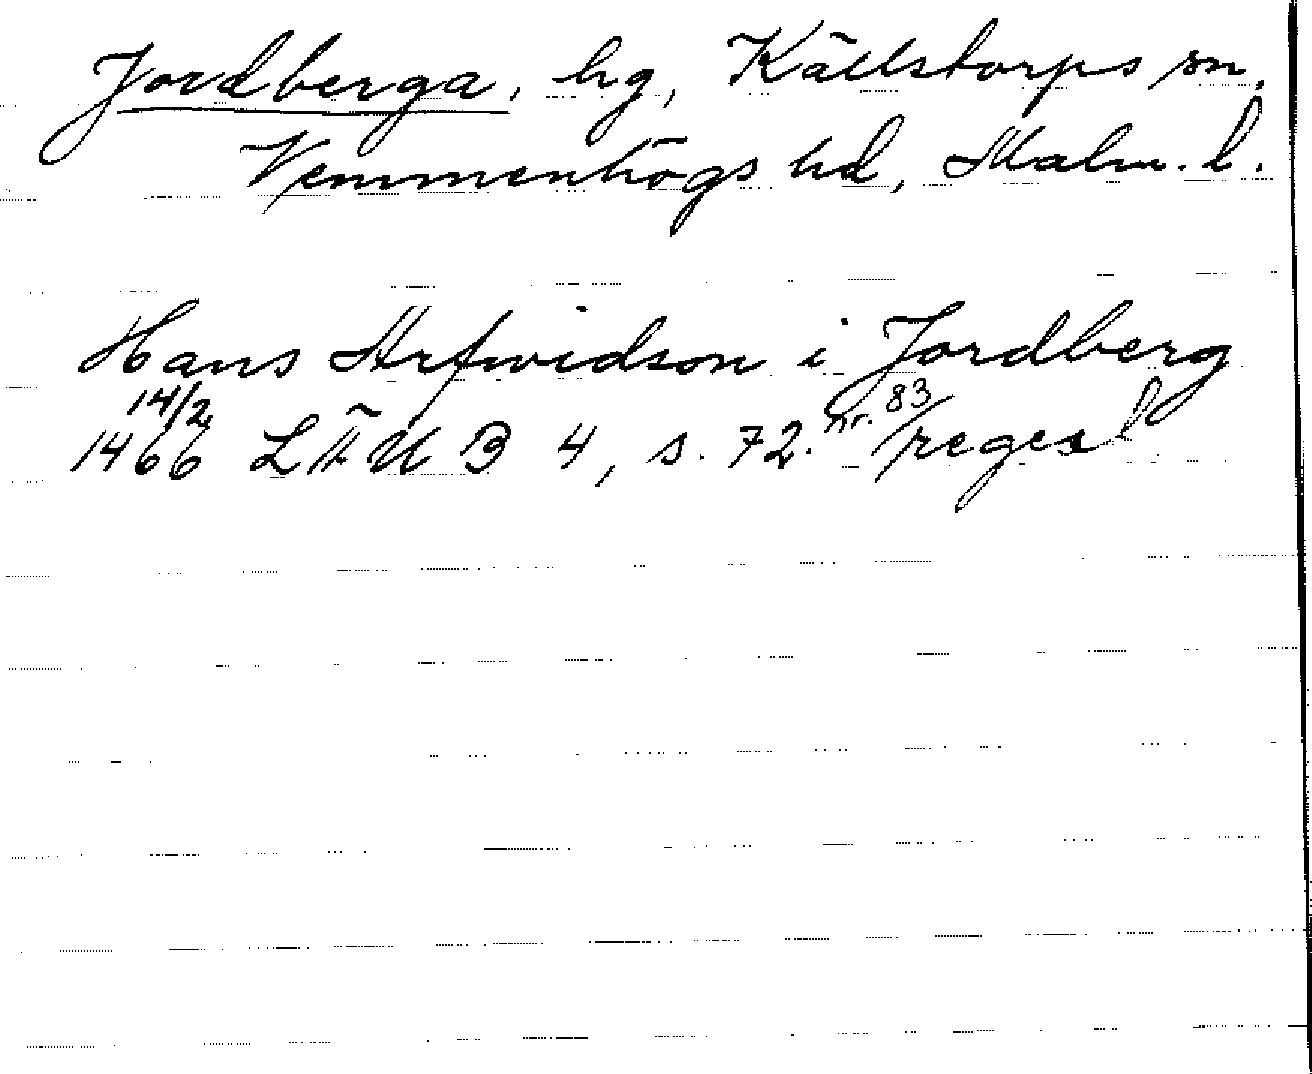 Jordberga, hg, Källstorps sn,
Vemmenhögs hd, Malm. l.
Hans Arfwidson i Jordberg
14/2 1466 LÄUB 4, s. 72. nr. 83 /regest